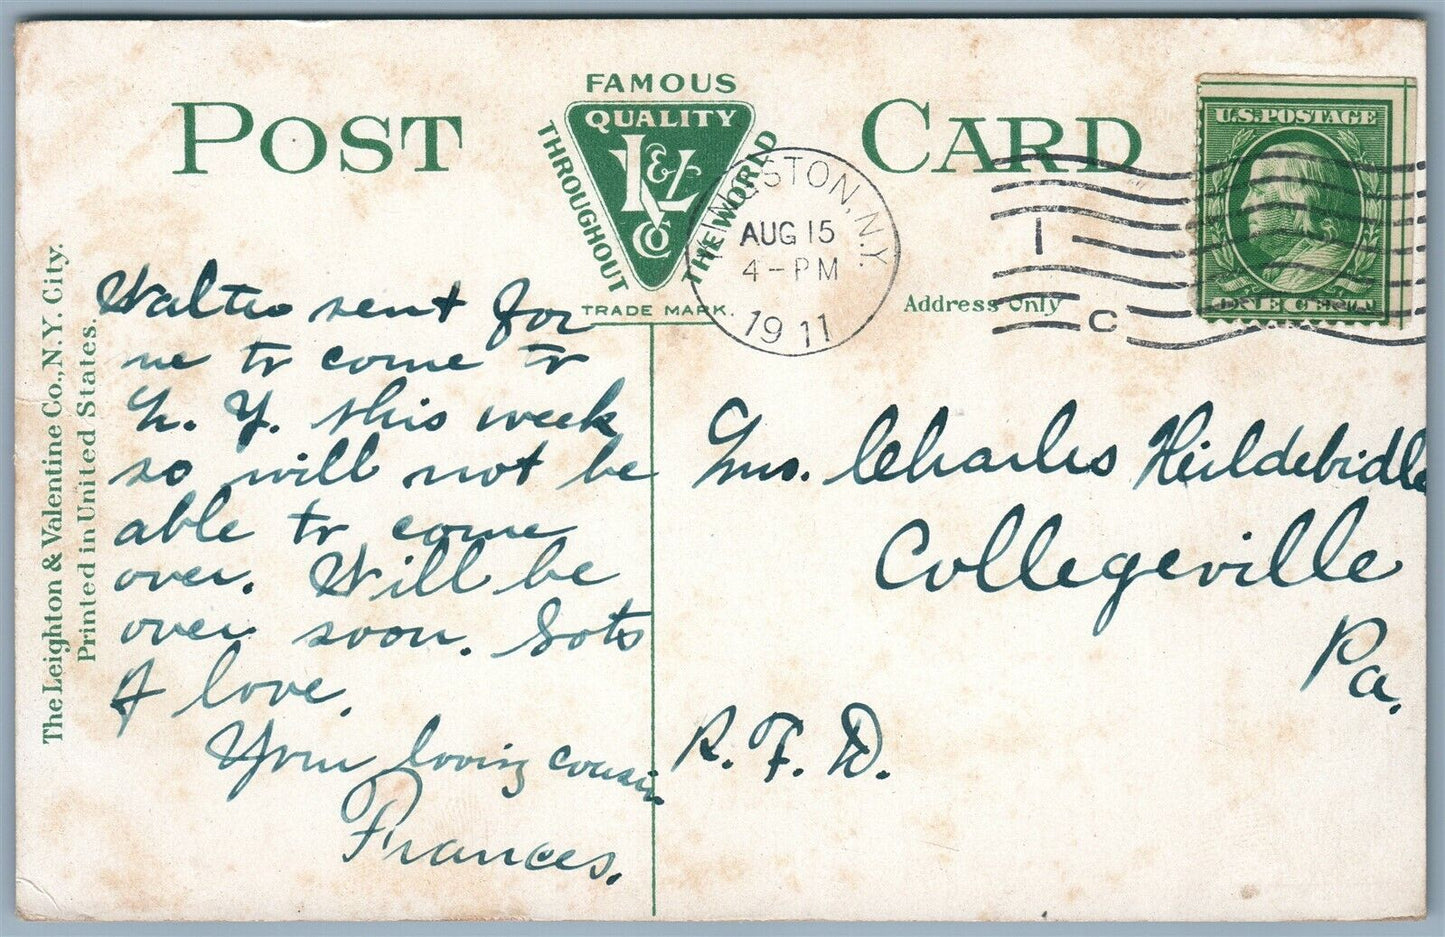 POST CARD
FAMOUS
QUALITY
L & V
CO
THROUGHOUT
THE WORLD
TRADE MARK.
KINGSTON, N.Y.
AUG 15
4-PM
1911
1
C
U.S. POSTAGE
ONE CENT
Address only
The Leighton & Valentine Co., N.Y. City.
Printed in United States.
Walter sent for
me to come to
N. Y. this week
so will not be
able to come
over. Will be
over soon. Lots
of love.
Your loving cousin
Frances.
Mrs. Charles Heildebidle
Collegeville
Pa.
R. F. D.